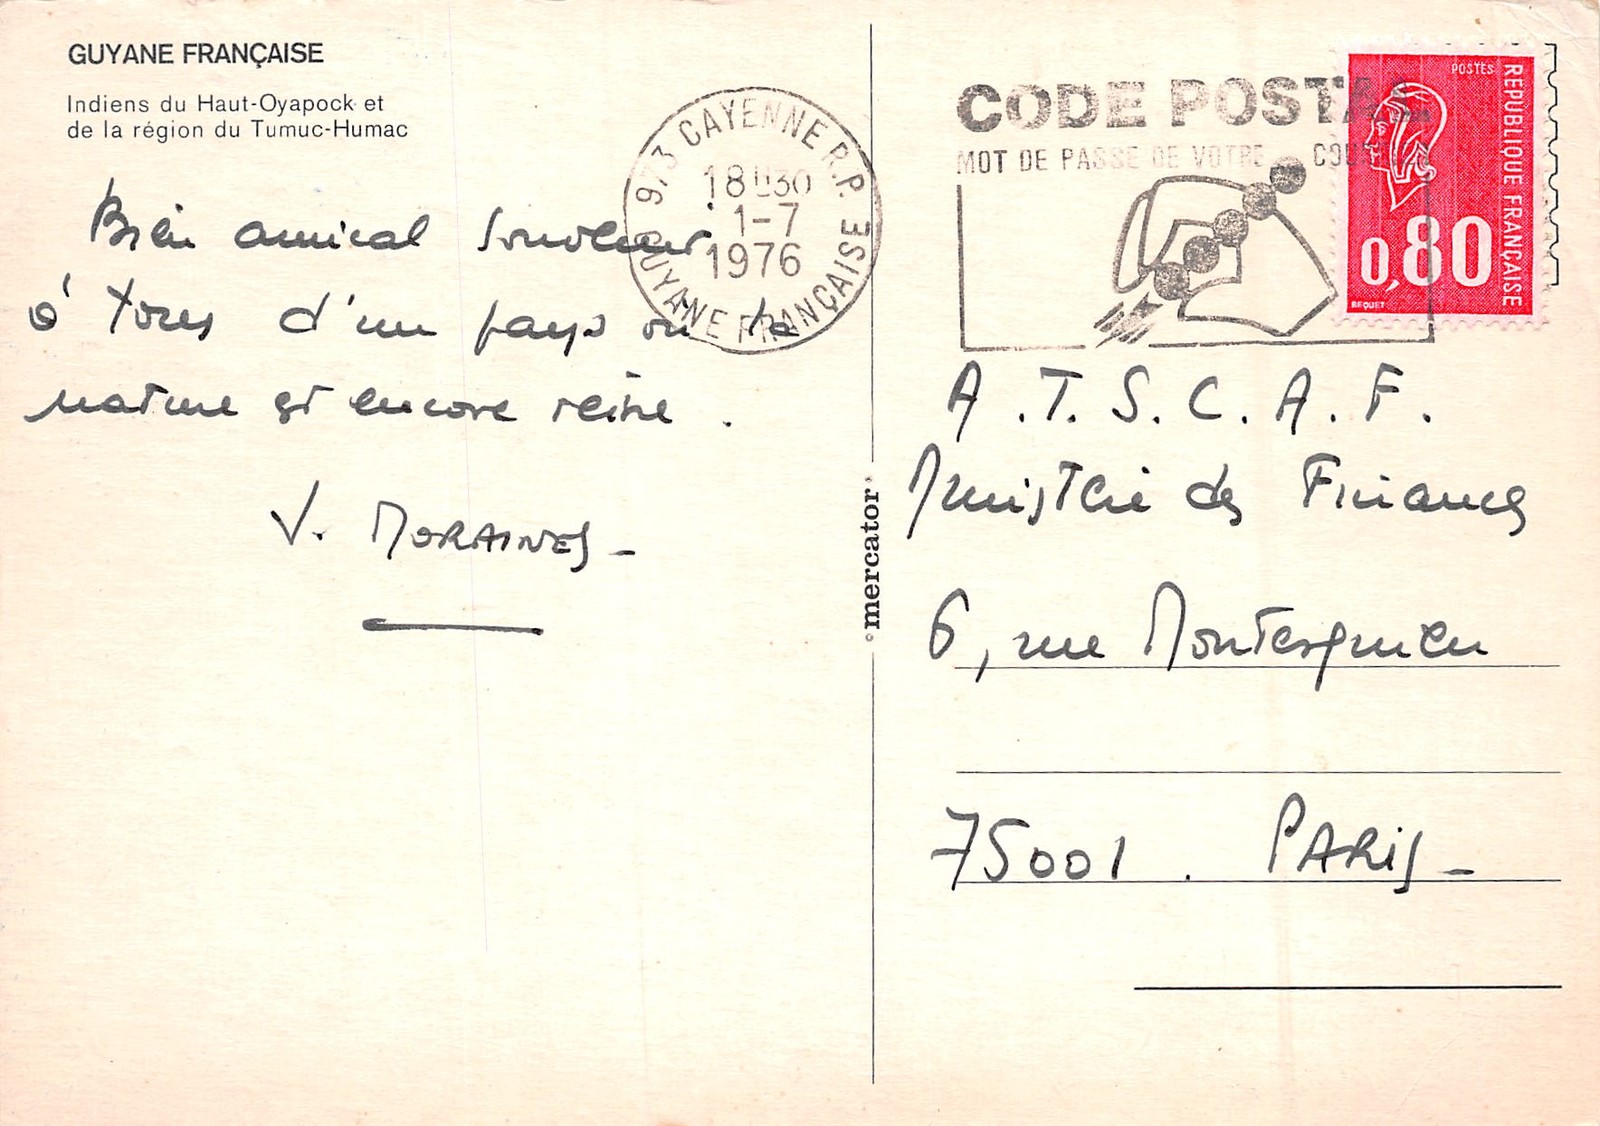 GUYANE FRANÇAISE
Indiens du Haut-Oyapock et
de la région du Tumuc-Humac
Bien amical souvenir
à tous d'un pays où la
nature est encore reine.
V. MORAINES -
973 CAYENNE R.P.
18H30
1-7
1976
GUYANE FRANÇAISE
CODE POSTAL
MOT DE PASSE DE VOTRE
POSTES
REPUBLIQUE FRANÇAISE
0,80
BEQUET
°mercator°
A.T.S.C.A.F.
Ministère des Finances
6, rue Montesquieu
75001. PARIS -